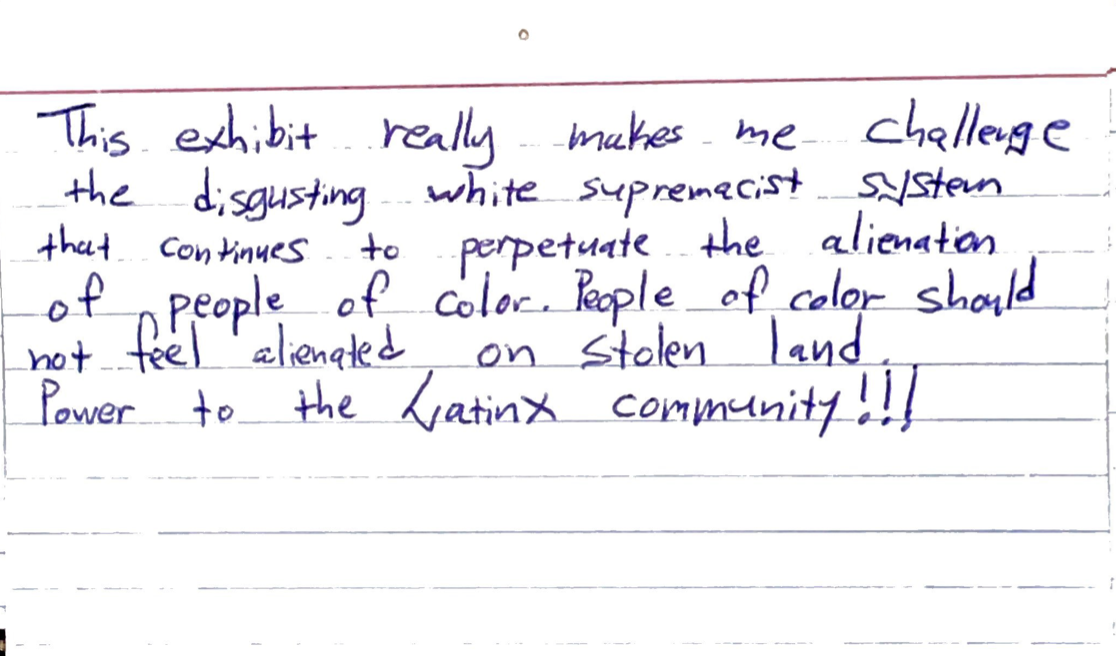 This exhibit really makes me challenge
the disgusting white supremacist system
that continues to perpetuate the alienation
of people of color. People of color should
not feel alienated on stolen land.
Power to the Latinx community!!!